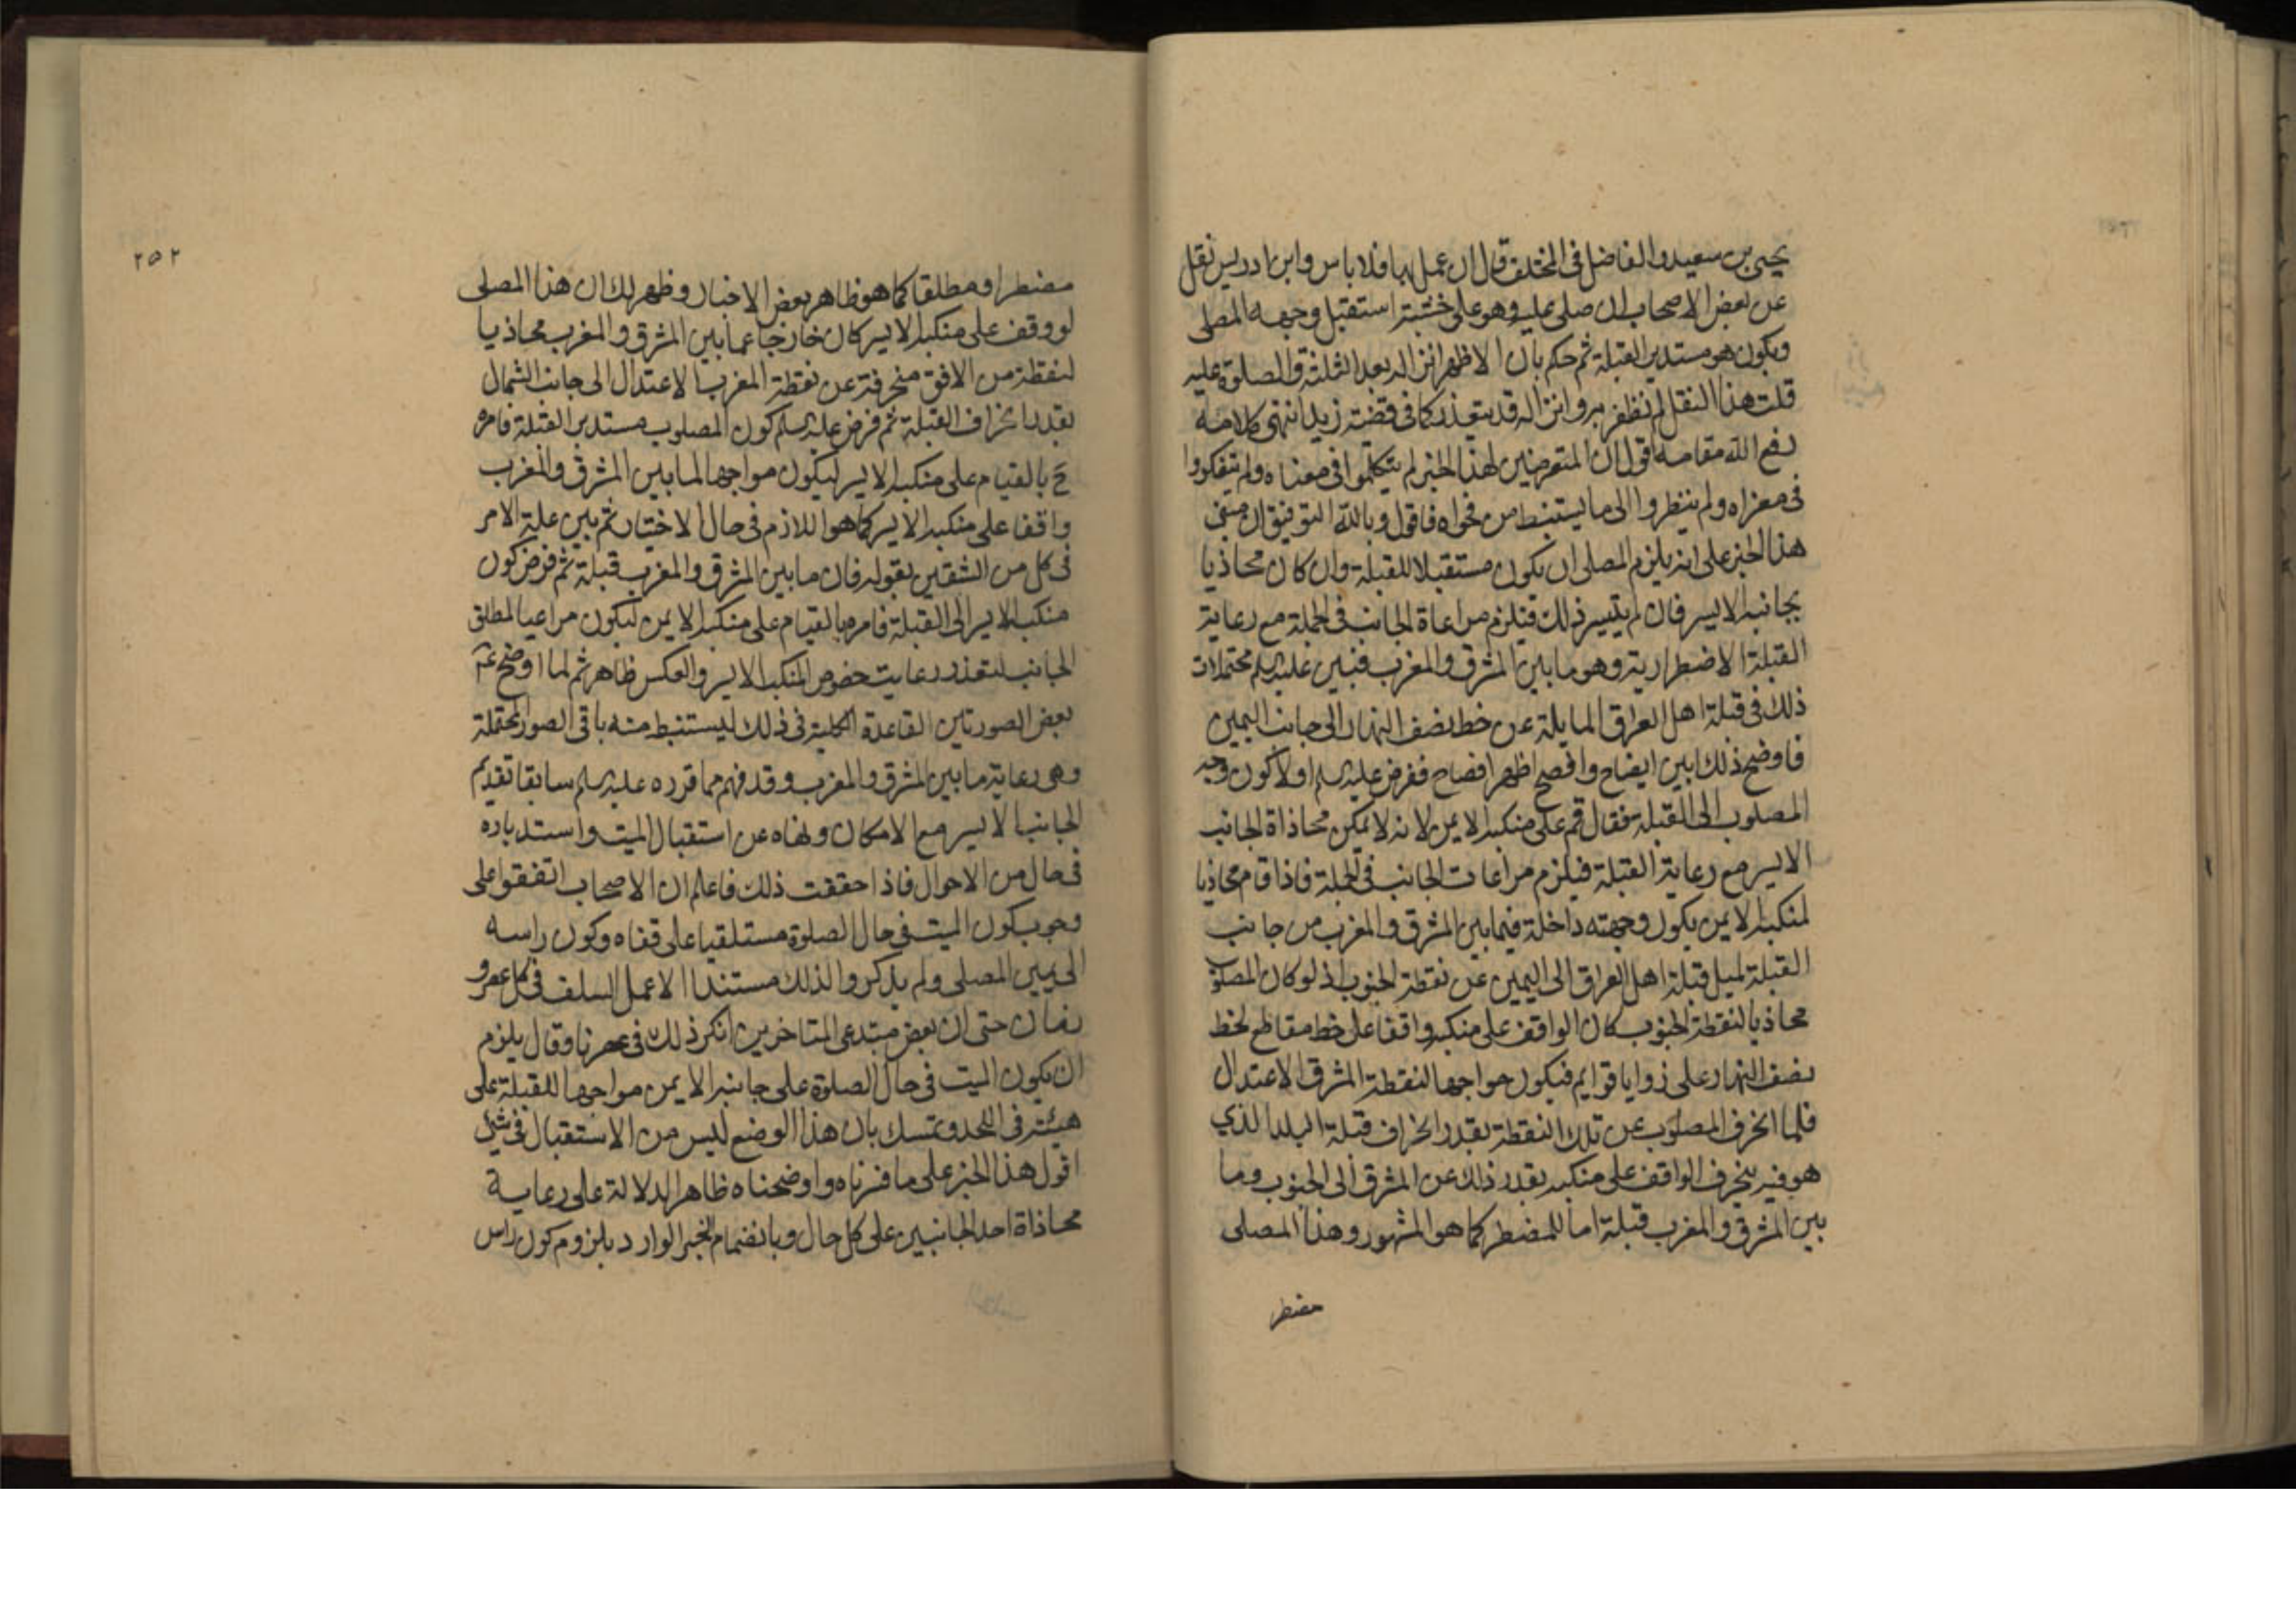 يحيى بن سعيد والفاضل فى المختلف قال ان عمل بها فلا باس وابن ادريس نقل
عن بعض الاصحاب ان صلى عليه وهو على خشبته استقبل وجهه المصلى
ويكون هو مستدبر القبلة ثم حكم بان الاظهر انزاله بعد الثلثة والصلوة عليه
قلت هذا النقل لم نظفر به وانزاله قد يتعذر كما فى قضية زيد انتهى كلامه
رفع الله مقامه اقول ان المتعرضين لهذا الخبر لم يتكلموا فى معناه ولم يتفكروا
فى مغزاه ولم ينظروا الى ما يستنبط من فحواه فاقول وبالله التوفيق ان مبنى
هذا الخبر على انه يلزم المصلى ان يكون مستقبلا للقبلة وان كان محاذيا
بجانبه الايسر فان لم يتيسر ذلك فيلزم مراعاة الجانب فى الجملة مع رعاية
القبلة الاضطرارية وهو ما بين المشرق والمغرب فبين عليه السلم محتملات
ذلك فى قبلة اهل العراق المايلة عن خط نصف النهار الى جانب اليمين
فاوضح ذلك ابين ايضاح وافصح اظهر افصاح ففرض عليه السلم اولا كون وجه
المصلوب الى القبلة فقال قم على منكبه الايمن لانه لا يمكن محاذاة الجانب
الايسر مع رعاية القبلة فيلزم مراعات الجانب فى الجملة فاذا قام محاذيا
لمنكبه الايمن يكون وجهته داخلة فيما بين المشرق والمغرب من جانب
القبلة لميل قبلة اهل العراق الى اليمين عن نقطة الجنوب اذ لو كان المصلوب
محاذيا لنقطة الجنوب كان الواقف على منكبه واقفا على خط مقاطع لخط
نصف النهار على زوايا قوايم فيكون مواجها لنقطة المشرق الاعتدال
فلما انحرف المصلوب عن تلك النقطة بقدر انحراف قبلة البلد الذي
هو فيه ينحرف الواقف على منكبه بقدر ذلك عن المشرق الى الجنوب وما
بين المشرق والمغرب قبلة اما للمضطر كما هو المشهور وهذا المصلى
مضطر
٢٥٢
مضطر او مطلقا كما هو ظاهر بعض الاخبار وظهر لك ان هذا المصلى
لو وقف على منكبه الايسر كان خارجا عما بين المشرق والمغرب محاذيا
لنقطة من الافق منحرفة عن نقطة المغرب الاعتدال الى جانب الشمال
بقدر انحراف القبلة ثم فرض عليه السلم كون المصلوب مستدبر القبلة فامره
ح بالقيام على منكبه الايسر ليكون مواجها لما بين المشرق والمغرب
واقفا على منكبه الايسر كما هو اللازم فى حال الاختيار ثم بين علة الامر
فى كل من الشقين بقوله فان ما بين المشرق والمغرب قبلة ثم فرض كون
منكبه الايسر الى القبلة فامره بالقيام على منكبه الايمن ليكون مراعيا لمطلق
الجانب لتعذر رعايت خصوص المنكب الايسر والعكس ظاهر ثم لما اوضح عم
بعض الصور تاين القاعدة الكلية فى ذلك ليستنبط منه باقى الصور المحتملة
وهى رعاية ما بين المشرق والمغرب وقد فهم مما قرره عليه السلم سابقا تقديم
الجانب الايسر مع الامكان ونهاه عن استقبال الميت واستدباره
فى حال من الاحوال فاذا حققت ذلك فاعلم ان الاصحاب اتفقوا على
وجوب كون الميت فى حال الصلوة مستلقيا على قفاه وكون راسه
الى يمين المصلى ولم يذكروا لذلك مستندا الا عمل السلف فى كل عصر و
زمان حتى ان بعض مبتدعى المتاخرين انكر ذلك فى عصرنا وقال يلزم
ان يكون الميت فى حال الصلوة على جانبه الايمن مواجها للقبلة على
هيئته فى اللحد وتمسك بان هذا الوضع ليس من الاستقبال فى شئ
اقول هذا الخبر على ما فسرناه واوضحناه ظاهر الدلالة على رعاية
محاذاة احد الجانبين على كل حال وبانضمام الخبر الوارد بلزوم كون راس